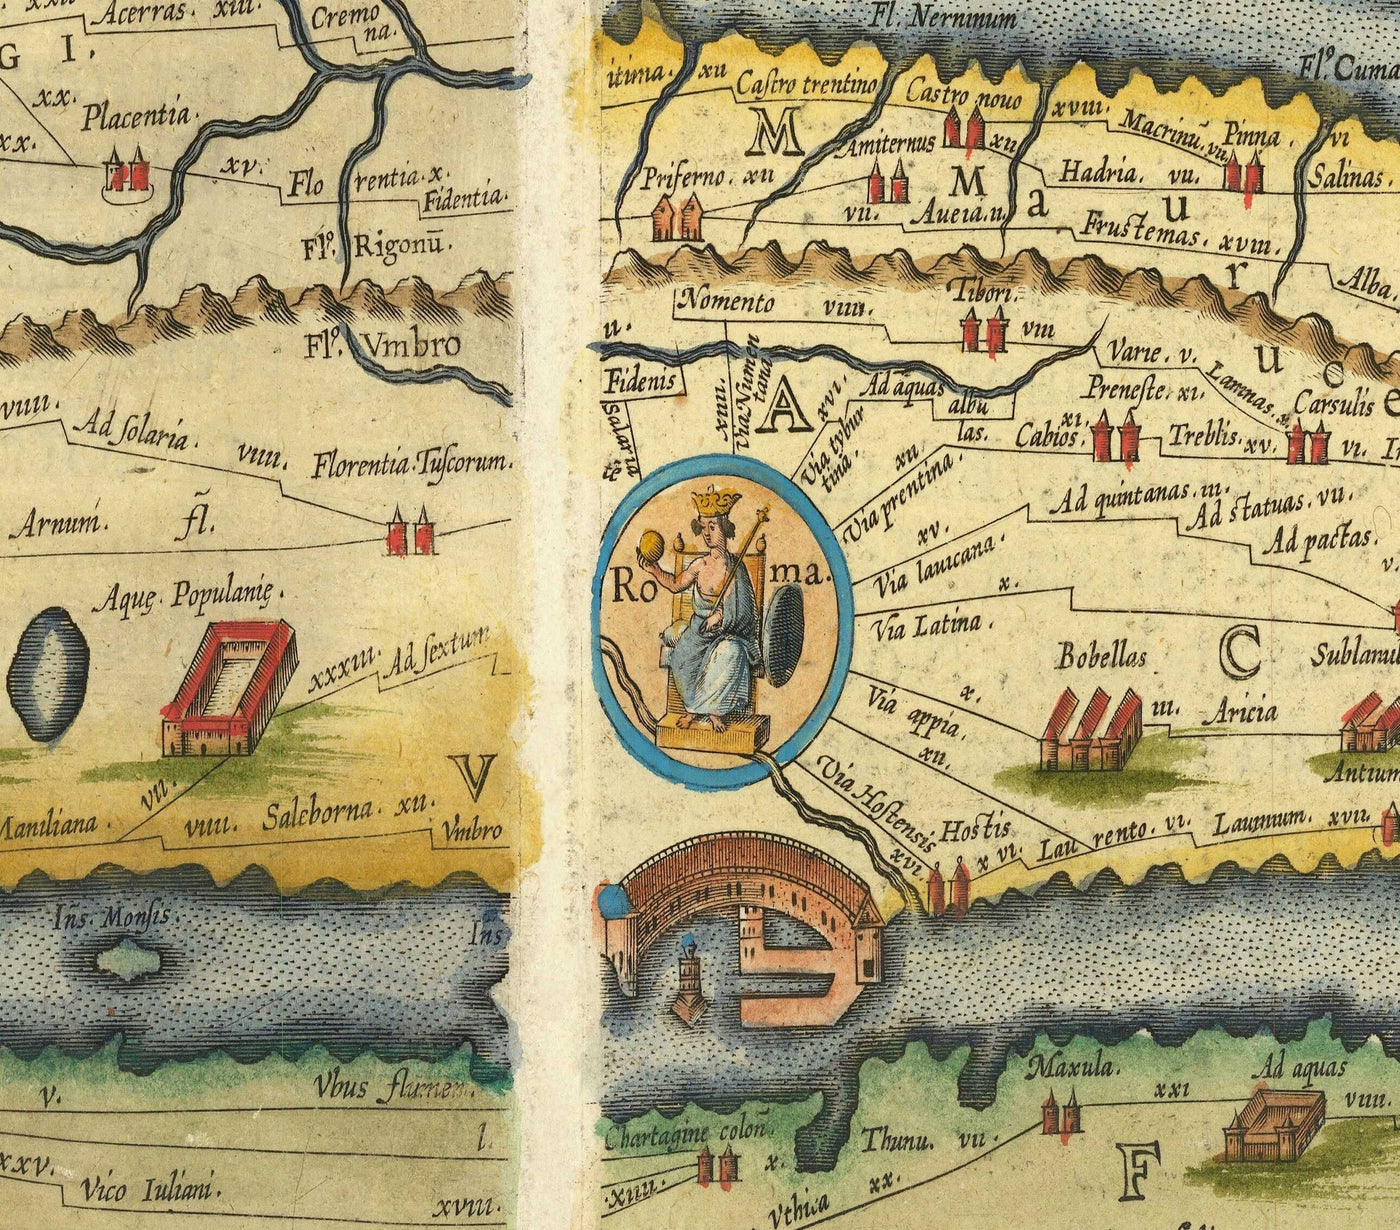 Acerras. xiii.
Cremo
na.
G I.
xx.
Placentia.
xx.
xv.
Flo rentia. x.
Fidentia.
Fl.º Rigonū.
Fl.º Vmbro
viiii.
Ad solaria.
viiii.
Florentia. Tuscorum.
Arnum. fl.
Aquę Populanię.
xxxiii. Ad sextum
vii.
Maniliana.
viiii. Saleborna. xii.
V
Vmbro
Ins. Monsis.
Ins
v.
Vbus flumen.
l.
xxv.
Vico Iuliani.
xviii.
Fl. Nerninum
Fl.º Cuma
itima. xii
Castro trentino
Castro nouo
xviii.
Macrinū. vii.
Pinna.
vi
M
Amiternus
xii
Priferno. xii
M a u r u o e
Hadria. vii.
Salinas.
vii.
Aueia. ii.
Frustemas. xviii.
Alba.
Nomento viiii.
Tibori.
viii
Varie. v.
Lamnas. x.
Carsulis
u.
Fidenis
Salaria
xiiii.
Via Numen
tana
A
xvi.
Via tybur
tina.
Ad aquas
albu
las.
Preneste. xi.
xi.
Cabios.
Treblis. xv.
vi.
xii
Via prentina.
Ad quintanas. iii.
Ad statuas. vii.
Ad pactas.
v.
xv.
Via lauicana.
x.
Via Latina.
Ro ma.
Bobellas
C
Sublanu
x.
Via appia.
xii.
iii.
Aricia
Antium
Via Hostensis
xvi.
Hostis
x vi.
Lau rento. vi.
Laumum. xvii.
Maxula.
xxi
Ad aquas
viiii.
Chartagine coloñ.
x.
Thunu. vii.
F
xiiii.
Vthica xx.